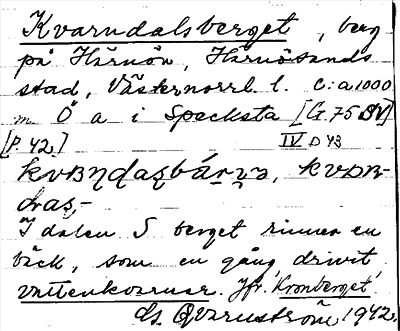 Kvarndalsberget, berg
på Härnön, Härnösands
stad, Västernorrl. l. c:a 1000
m Ö a i Specksta [G. 75 SV]
[P. 42] IV D 43
dras,-
I dalen S berget rinner en
bäck, som en gång drivit
vattenkvarnar. Jfr. 'Kronberget'
G. Qvarnström 1942.